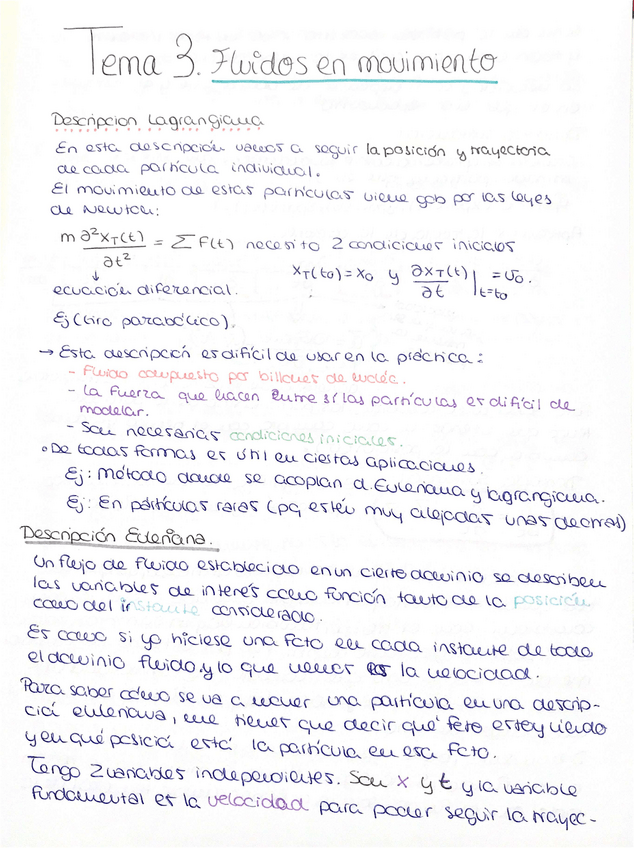 Tema 3. Fluidos en movimiento
Descripcion Lagrangiana
En esta descripción vamos a seguir la posición y trayectoria
de cada partícula individual.
El movimiento de estas partículas viene gob por las leyes
de Newton:
m ∂²x_T(t)/∂t² = ∑ F(t) necesito 2 condiciones iniciales
↓ x_T(t0) = x0 y ∂x_T(t)/∂t |t=t0 = v0.
ecuación diferencial.
Ej (tiro parabólico).
→ Esta descripción es difícil de usar en la práctica:
- Fluido compuesto por billones de moléc.
- La fuerza que hacen entre sí las partículas es difícil de
modelar.
- Son necesarias condiciones iniciales.
• De todas formas es útil en ciertas aplicaciones.
Ej: Método donde se acoplan d. Euleriana y lagrangiana.
Ej: En partículas raras (pq estén muy alejadas unas de otras)
Descripción Euleriana.
Un flujo de fluido establecido en un cierto dominio se describen
las variables de interés como función tanto de la posición
como del instante considerado.
Es como si yo hiciese una foto en cada instante de todo
el dominio fluido, y lo que vemos es la velocidad.
Para saber cómo se va a mover una partícula en una descrip-
ció euleriana, me tienes que decir qué foto estoy viendo
y en qué posició está la partícula en esa foto.
Tengo 2 variables independientes. Son x y t y la variable
fundamental es la velocidad para poder seguir la trayec-